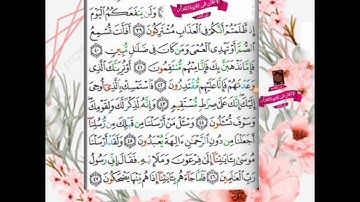 وَلَن يَنفَعَكُمُ ٱلۡيَوۡمَ
إِذ ظَّلَمۡتُمۡ أَنَّكُمۡ فِي ٱلۡعَذَابِ مُشۡتَرِكُونَ ٣٩ أَفَأَنتَ تُسۡمِعُ
ٱلصُّمَّ أَوۡ تَهۡدِي ٱلۡعُمۡيَ وَمَن كَانَ فِي ضَلَٰلٖ مُّبِينٖ ٤٠
فَإِمَّا نَذۡهَبَنَّ بِكَ فَإِنَّا مِنۡهُم مُّنتَقِمُونَ ٤١ أَوۡ نُرِيَنَّكَ ٱلَّذِي
وَعَدۡنَٰهُمۡ فَإِنَّا عَلَيۡهِم مُّقۡتَدِرُونَ ٤٢ فَٱسۡتَمۡسِكۡ بِٱلَّذِيٓ أُوحِيَ
إِلَيۡكَۖ إِنَّكَ عَلَىٰ صِرَٰطٖ مُّسۡتَقِيمٖ ٤٣ وَإِنَّهُۥ لَذِكۡرٞ لَّكَ وَلِقَوۡمِكَۖ
وَسَوۡفَ تُسۡـَٔلُونَ ٤٤ وَسۡـَٔلۡ مَنۡ أَرۡسَلۡنَا مِن قَبۡلِكَ مِن رُّسُلِنَآ
أَجَعَلۡنَا مِن دُونِ ٱلرَّحۡمَٰنِ ءَالِهَةٗ يُعۡبَدُونَ ٤٥ وَلَقَدۡ أَرۡسَلۡنَا
مُوسَىٰ بِـَٔايَٰتِنَآ إِلَىٰ فِرۡعَوۡنَ وَمَلَإِيْهِۦ فَقَالَ إِنِّي رَسُولُ
رَبِّ ٱلۡعَٰلَمِينَ ٤٦ فَلَمَّا جَآءَهُم بِـَٔايَٰتِنَآ إِذَا هُم مِّنۡهَا يَضۡحَكُونَ ٤٧